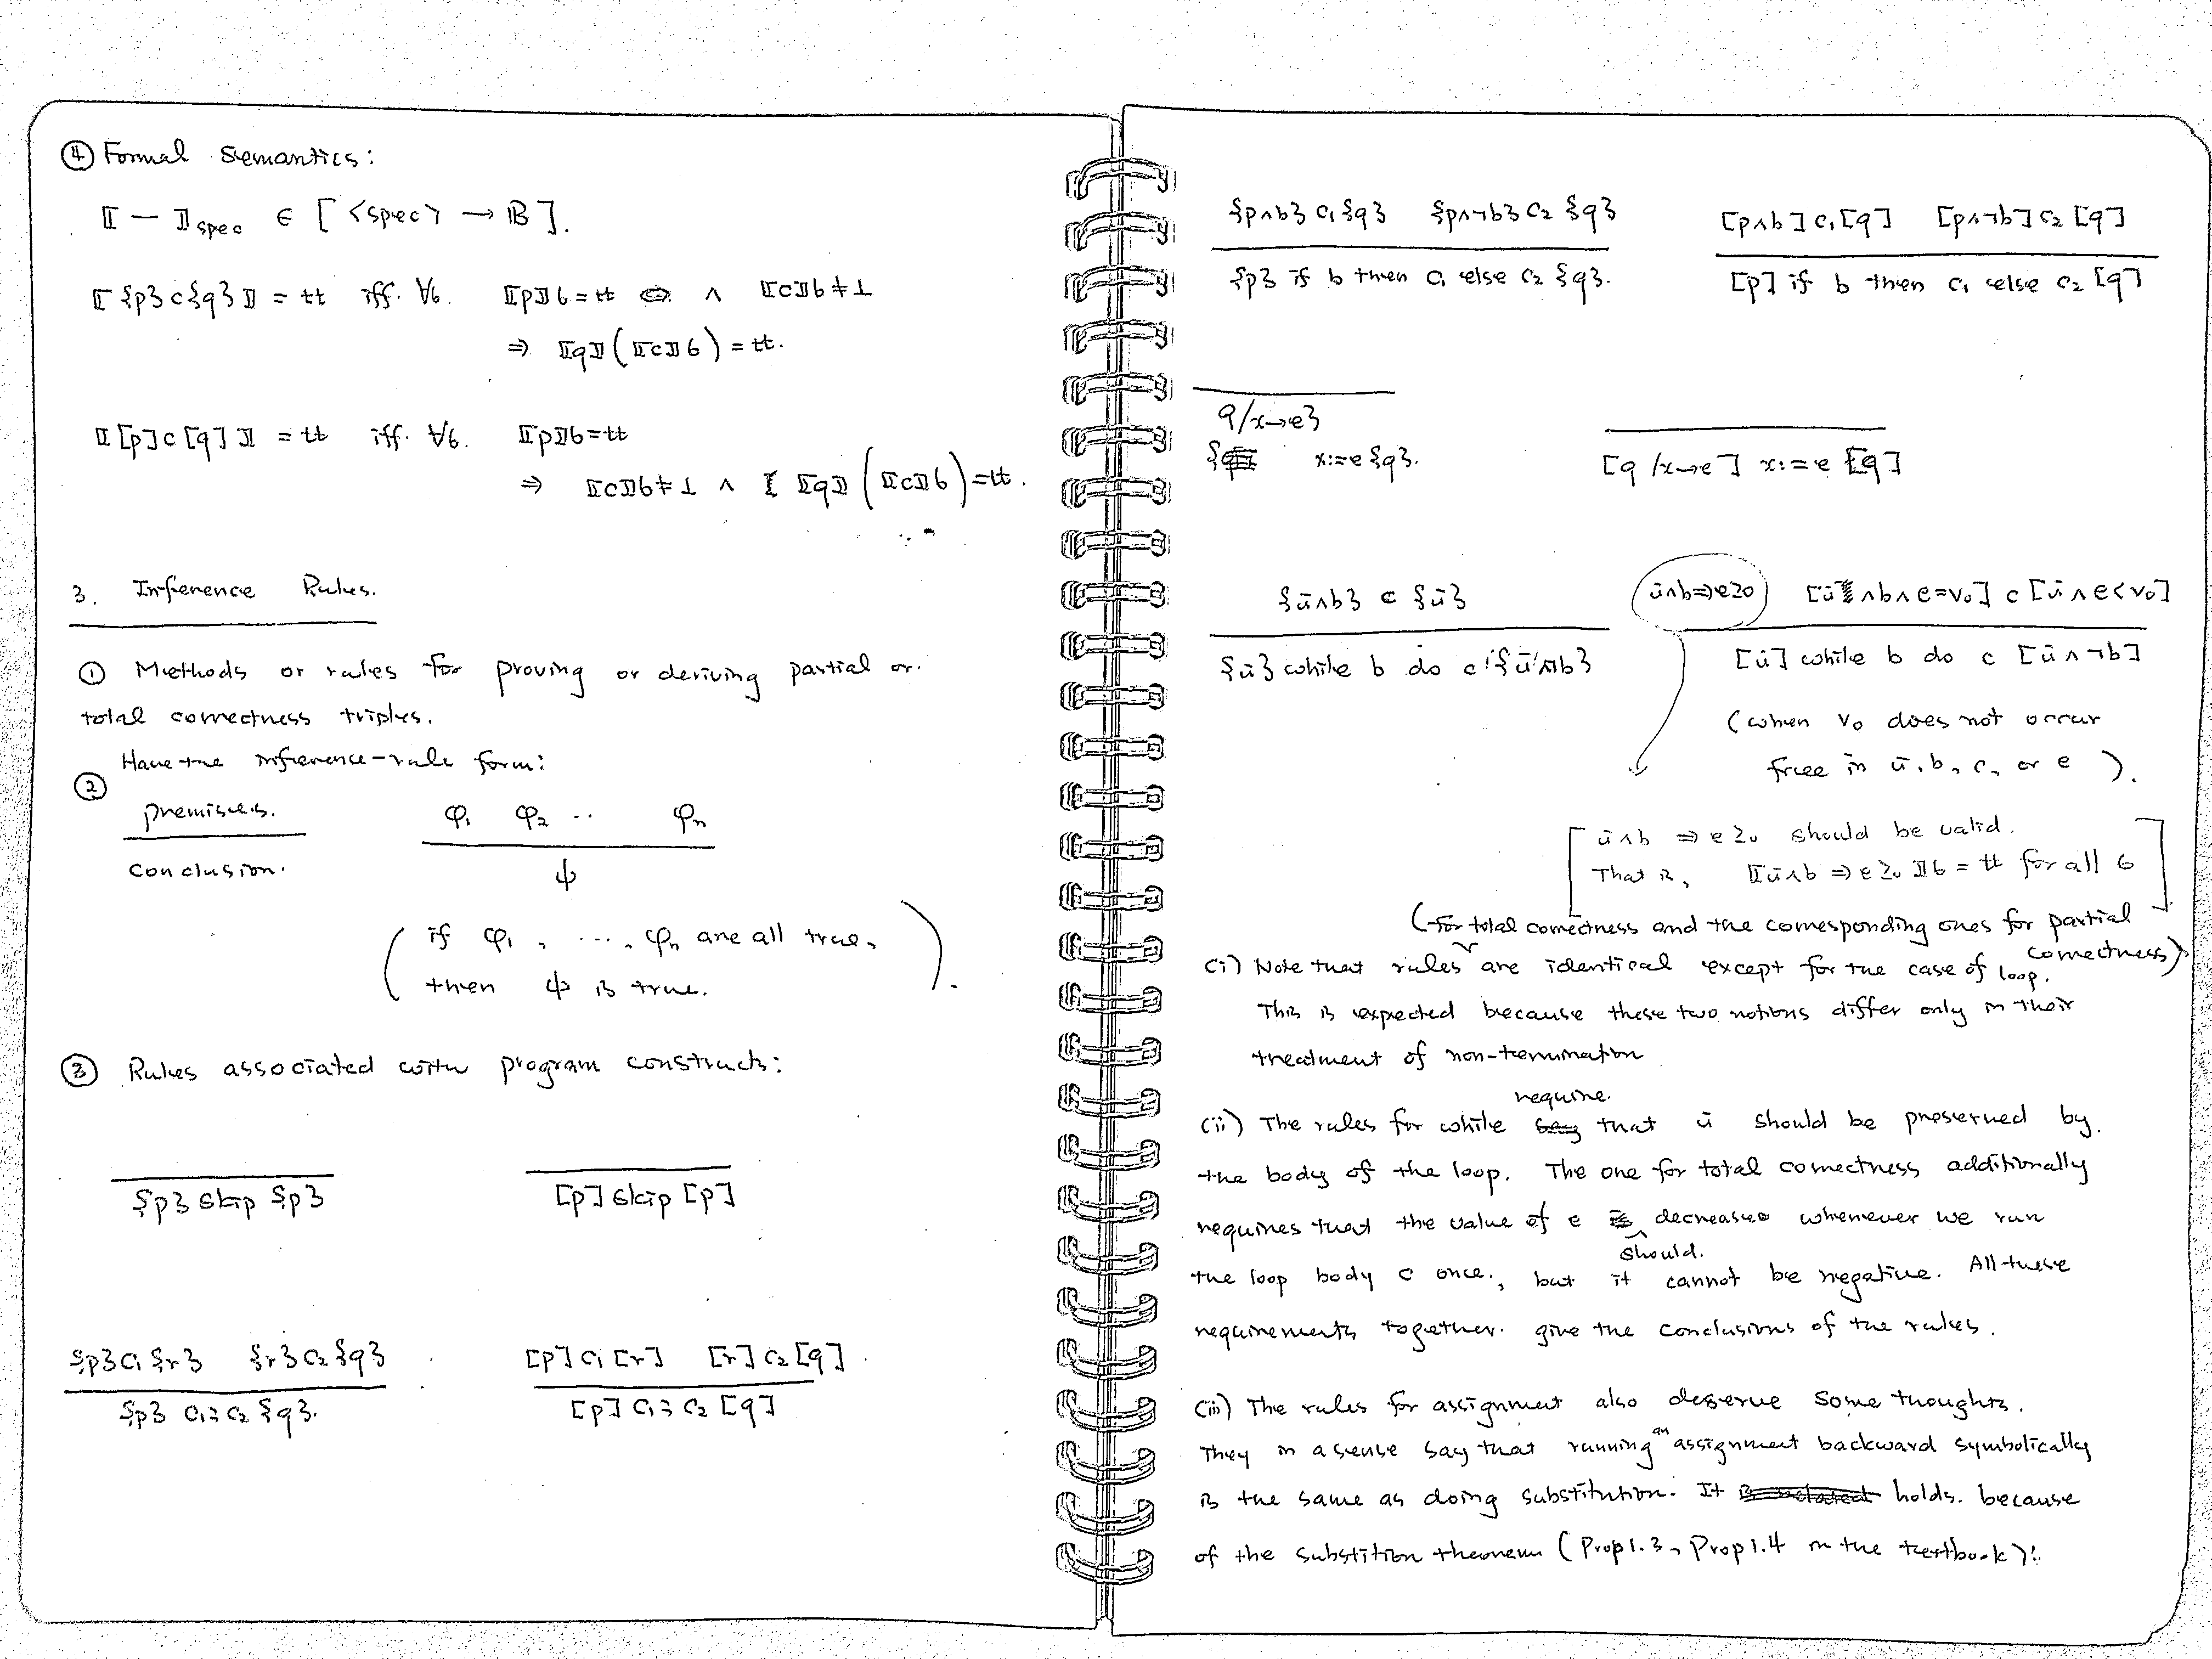 ④ Formal semantics:
⟦ — ⟧spec ∈ [ <spec> → 𝔹 ].
⟦ {p} c {q} ⟧ = tt iff. ∀σ. ⟦p⟧σ = tt ∧ ⟦c⟧σ ≠ ⊥
⇒ ⟦q⟧ ( ⟦c⟧σ ) = tt.
⟦ [p] c [q] ⟧ = tt iff. ∀σ. ⟦p⟧σ = tt
⇒ ⟦c⟧σ ≠ ⊥ ∧ ⟦q⟧ ( ⟦c⟧σ ) = tt.
3. Inference Rules.
① Methods or rules for proving or deriving partial or.
total correctness triples.
② Have the inference-rule form:
premises. φ₁ φ₂ .. φₙ
conclusion. ψ
( if φ₁, ..., φₙ are all true,
then ψ is true. ).
③ Rules associated with program constructs:
{p} skip {p} [p] skip [p]
{p} c₁ {r} {r} c₂ {q} [p] c₁ [r] [r] c₂ [q].
{p} c₁; c₂ {q}. [p] c₁; c₂ [q]
{p∧b} c₁ {q} {p∧¬b} c₂ {q} [p∧b] c₁ [q] [p∧¬b] c₂ [q]
{p} if b then c₁ else c₂ {q}. [p] if b then c₁ else c₂ [q]
q/x→e}
{ x:=e {q}. [q /x→e] x:=e [q]
{ū∧b} c {ū} ū∧b⇒e≥0 [ū∧b∧e=v₀] c [ū∧e<v₀]
{ū} while b do c {ū∧¬b} [ū] while b do c [ū∧¬b]
(when v₀ does not occur
free in ū, b, c, or e ).
[ ū∧b ⇒ e≥0 should be valid.
That is, ⟦ū∧b ⇒ e≥0⟧σ = tt for all σ ]
(for total correctness and the corresponding ones for partial
correctness)
(i) Note that rules are identical except for the case of loop.
This is expected because these two notions differ only in their
treatment of non-termination
require.
(ii) The rules for while that ū should be preserved by.
the body of the loop. The one for total correctness additionally
requires that the value of e decreases whenever we run
should.
the loop body c once., but it cannot be negative. All these
requirements together. give the conclusions of the rules.
(iii) The rules for assignment also deserve some thoughts.
They in a sense say that running an assignment backward symbolically
is the same as doing substitution. It holds. because
of the substition theorem (Prop1.3, Prop1.4 in the textbook)!.